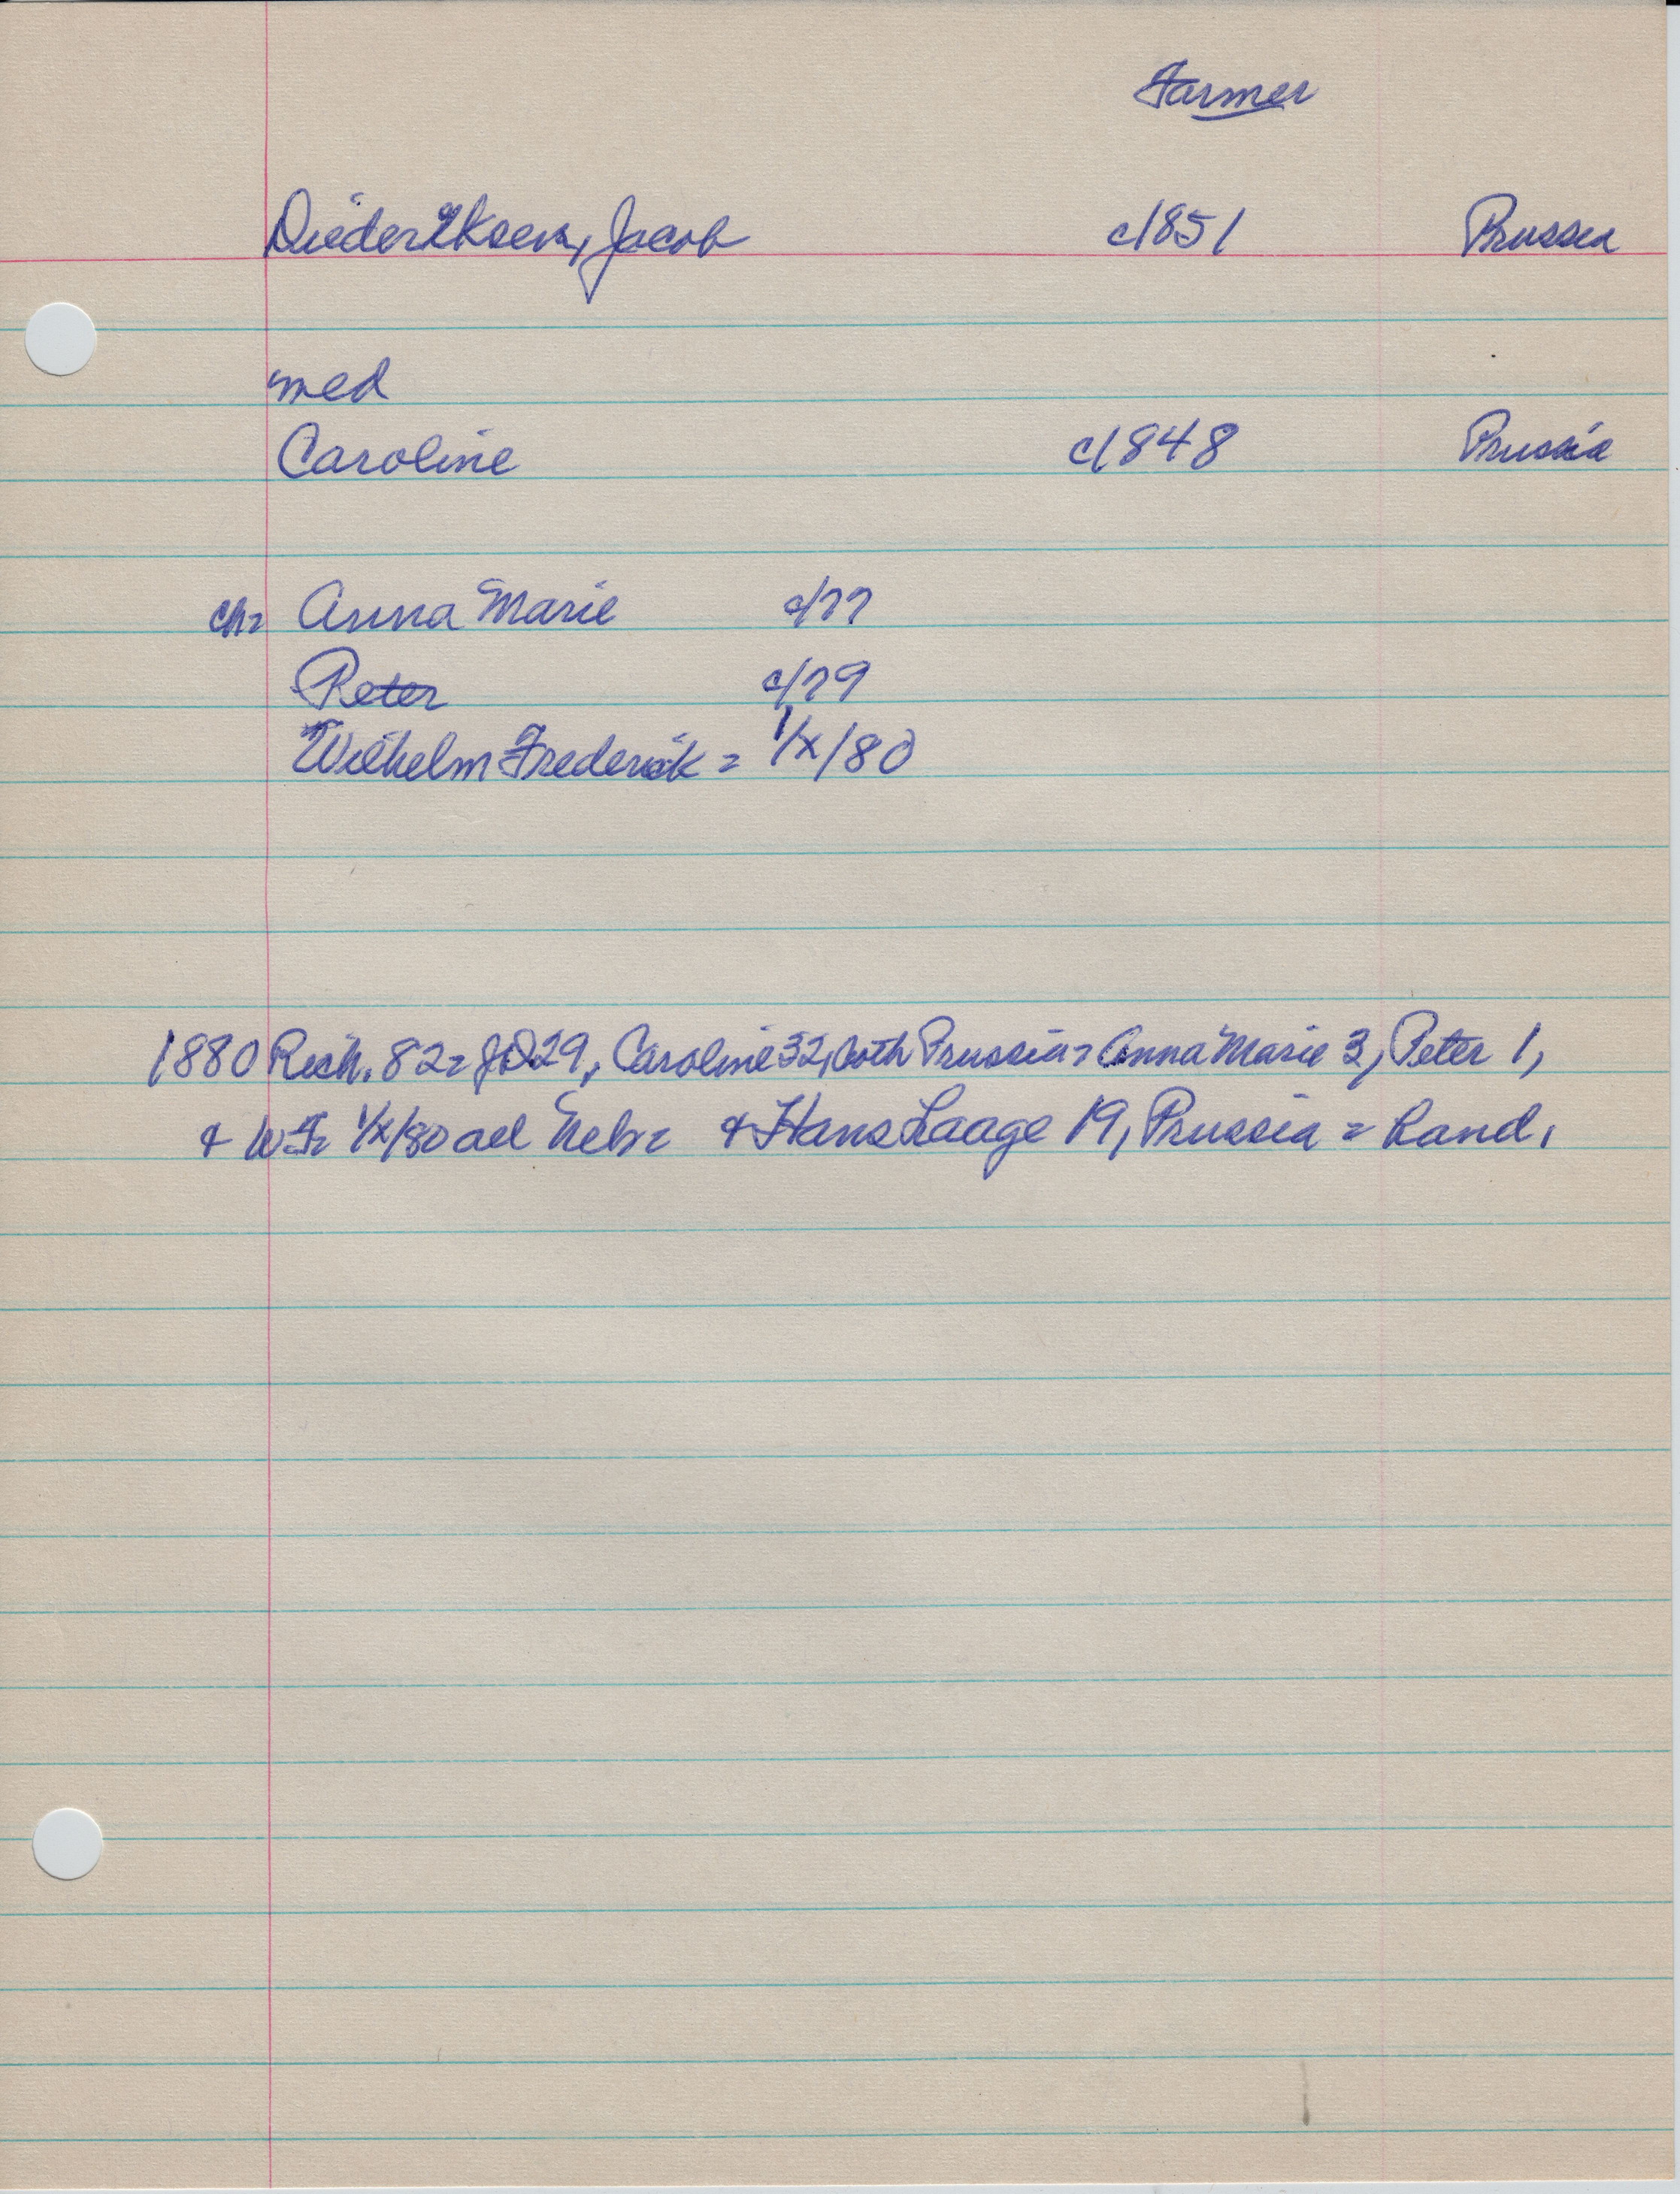 Farmer
Diederiksen, Jacob c1851 Prussia
med
Caroline c1848 Prussia
ch= Anna Marie c/77
Peter c/79
Wilhelm Frederick = 1/x/80
1880 Rich. 82= JD 29, Caroline 32, both Prussia= Anna Marie 3, Peter 1,
& WF= 1/x/80 all Nebr= & Hans Laage 19, Prussia = hand.